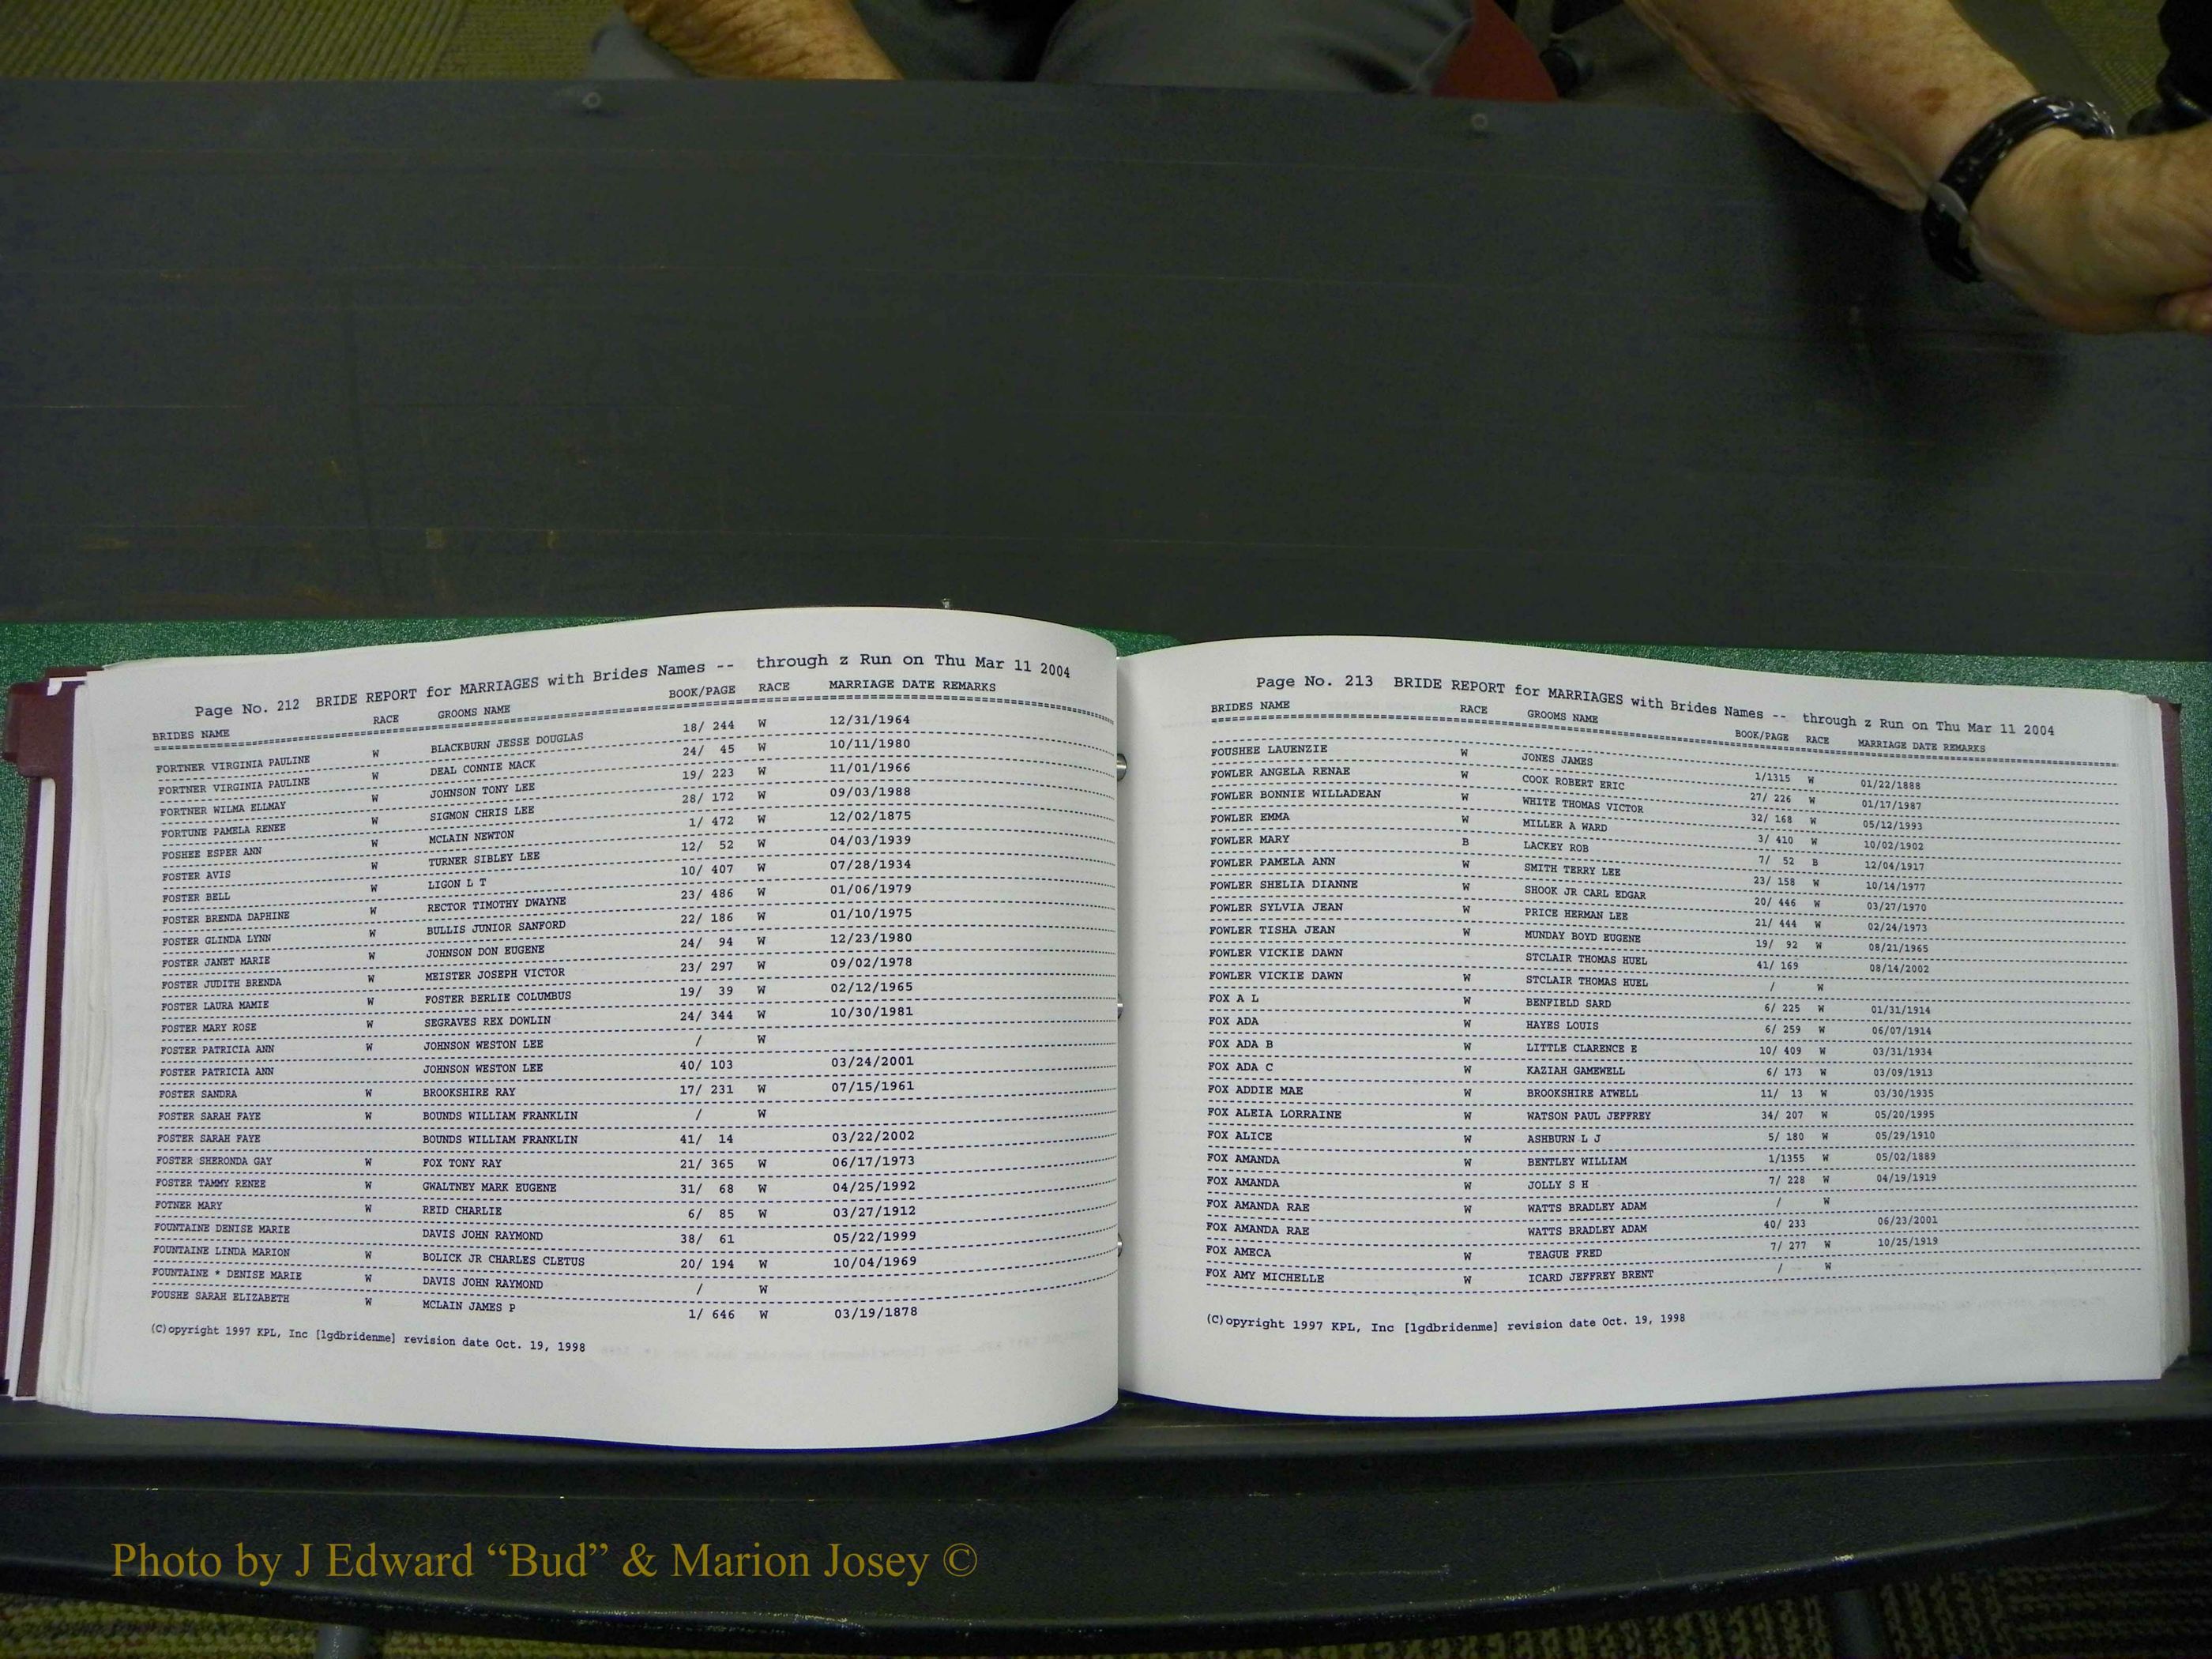 Page No. 212 BRIDE REPORT for MARRIAGES with Brides Names -- through z Run on Thu Mar 11 2004
BRIDES NAME RACE GROOMS NAME BOOK/PAGE RACE MARRIAGE DATE REMARKS
FORTNER VIRGINIA PAULINE W BLACKBURN JESSE DOUGLAS 18/ 244 W 12/31/1964
FORTNER VIRGINIA PAULINE W DEAL CONNIE MACK 24/ 45 W 10/11/1980
FORTNER WILMA ELLMAY W JOHNSON TONY LEE 19/ 223 W 11/01/1966
FORTUNE PAMELA RENEE W SIGMON CHRIS LEE 28/ 172 W 09/03/1988
FOSHEE ESPER ANN W MCLAIN NEWTON 1/ 472 W 12/02/1875
FOSTER AVIS W TURNER SIBLEY LEE 12/ 52 W 04/03/1939
FOSTER BELL W LIGON L T 10/ 407 W 07/28/1934
FOSTER BRENDA DAPHINE W RECTOR TIMOTHY DWAYNE 23/ 486 W 01/06/1979
FOSTER GLINDA LYNN W BULLIS JUNIOR SANFORD 22/ 186 W 01/10/1975
FOSTER JANET MARIE W JOHNSON DON EUGENE 24/ 94 W 12/23/1980
FOSTER JUDITH BRENDA W MEISTER JOSEPH VICTOR 23/ 297 W 09/02/1978
FOSTER LAURA MAMIE W FOSTER BERLIE COLUMBUS 19/ 39 W 02/12/1965
FOSTER MARY ROSE W SEGRAVES REX DOWLIN 24/ 344 W 10/30/1981
FOSTER PATRICIA ANN W JOHNSON WESTON LEE / W
FOSTER PATRICIA ANN JOHNSON WESTON LEE 40/ 103 03/24/2001
FOSTER SANDRA W BROOKSHIRE RAY 17/ 231 W 07/15/1961
FOSTER SARAH FAYE W BOUNDS WILLIAM FRANKLIN / W
FOSTER SARAH FAYE BOUNDS WILLIAM FRANKLIN 41/ 14 03/22/2002
FOSTER SHERONDA GAY W FOX TONY RAY 21/ 365 W 06/17/1973
FOSTER TAMMY RENEE W GWALTNEY MARK EUGENE 31/ 68 W 04/25/1992
FOTNER MARY W REID CHARLIE 6/ 85 W 03/27/1912
FOUNTAINE DENISE MARIE DAVIS JOHN RAYMOND 38/ 61 05/22/1999
FOUNTAINE LINDA MARION W BOLICK JR CHARLES CLETUS 20/ 194 W 10/04/1969
FOUNTAINE * DENISE MARIE W DAVIS JOHN RAYMOND / W
FOUSHE SARAH ELIZABETH W MCLAIN JAMES P 1/ 646 W 03/19/1878
(C)opyright 1997 KPL, Inc [lgdbridenme] revision date Oct. 19, 1998
Page No. 213 BRIDE REPORT for MARRIAGES with Brides Names -- through z Run on Thu Mar 11 2004
BRIDES NAME RACE GROOMS NAME BOOK/PAGE RACE MARRIAGE DATE REMARKS
FOUSHEE LAUENZIE W JONES JAMES 1/1315 W 01/22/1888
FOWLER ANGELA RENAE W COOK ROBERT ERIC 27/ 226 W 01/17/1987
FOWLER BONNIE WILLADEAN W WHITE THOMAS VICTOR 32/ 168 W 05/12/1993
FOWLER EMMA W MILLER A WARD 3/ 410 W 10/02/1902
FOWLER MARY B LACKEY ROB 7/ 52 B 12/04/1917
FOWLER PAMELA ANN W SMITH TERRY LEE 23/ 158 W 10/14/1977
FOWLER SHELIA DIANNE W SHOOK JR CARL EDGAR 20/ 446 W 03/27/1970
FOWLER SYLVIA JEAN W PRICE HERMAN LEE 21/ 444 W 02/24/1973
FOWLER TISHA JEAN W MUNDAY BOYD EUGENE 19/ 92 W 08/21/1965
FOWLER VICKIE DAWN STCLAIR THOMAS HUEL 41/ 169 08/14/2002
FOWLER VICKIE DAWN W STCLAIR THOMAS HUEL / W
FOX A L W BENFIELD SARD 6/ 225 W 01/31/1914
FOX ADA W HAYES LOUIS 6/ 259 W 06/07/1914
FOX ADA B W LITTLE CLARENCE E 10/ 409 W 03/31/1934
FOX ADA C W KAZIAH GAMEWELL 6/ 173 W 03/09/1913
FOX ADDIE MAE W BROOKSHIRE ATWELL 11/ 13 W 03/30/1935
FOX ALEIA LORRAINE W WATSON PAUL JEFFREY 34/ 207 W 05/20/1995
FOX ALICE W ASHBURN L J 5/ 180 W 05/29/1910
FOX AMANDA W BENTLEY WILLIAM 1/1355 W 05/02/1889
FOX AMANDA W JOLLY S H 7/ 228 W 04/19/1919
FOX AMANDA RAE W WATTS BRADLEY ADAM / W
FOX AMANDA RAE WATTS BRADLEY ADAM 40/ 233 06/23/2001
FOX AMECA W TEAGUE FRED 7/ 277 W 10/25/1919
FOX AMY MICHELLE W ICARD JEFFREY BRENT / W
(C)opyright 1997 KPL, Inc [lgdbridenme] revision date Oct. 19, 1998
Photo by J Edward “Bud” & Marion Josey ©